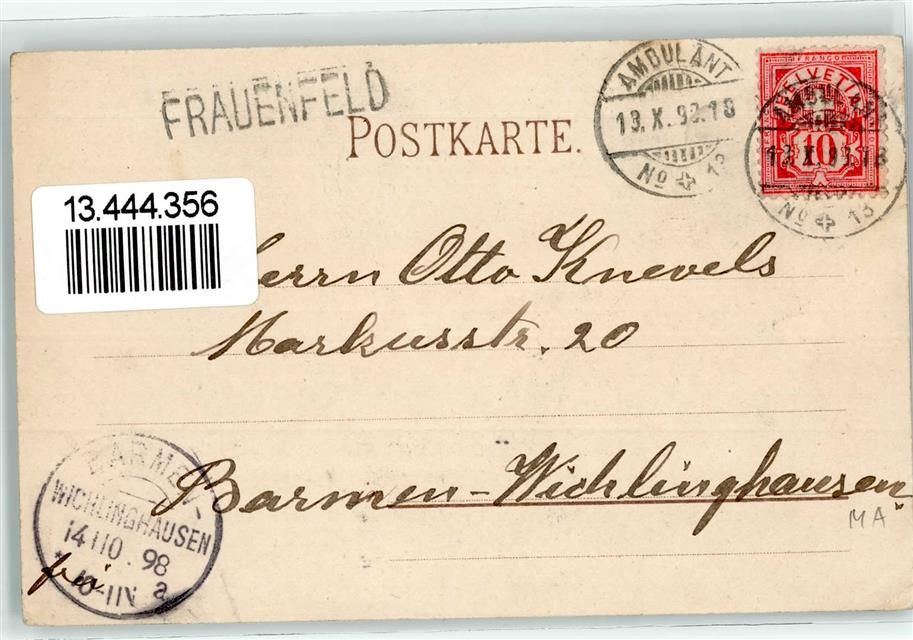 FRAUENFELD
POSTKARTE.
AMBULANT
13.X.98.18
No 13
FRANCO
HELVETIA
10
13.X.98.18
No 13
13.444.356
Herrn Otto Knevels
Markusstr. 20
Barmen-Wichlinghausen
MA
BARMEN-
WICHLINGHAUSEN
14 10 . 98
a